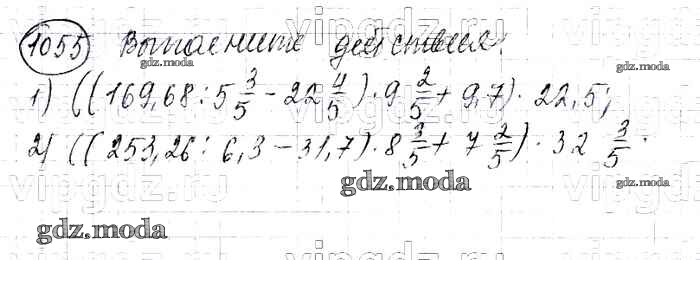 1055 Выполните действия:
1) ((169,68 : 5 3/5 − 22 4/5) · 9 2/5 + 9,7) · 22,5;
2) ((253,26 : 6,3 − 31,7) · 8 3/5 + 7 2/5) · 32 3/5.
gdz.moda
gdz.moda
gdz.moda
gdz.moda
gdz.moda
vipgdz.ru
vipgdz.ru